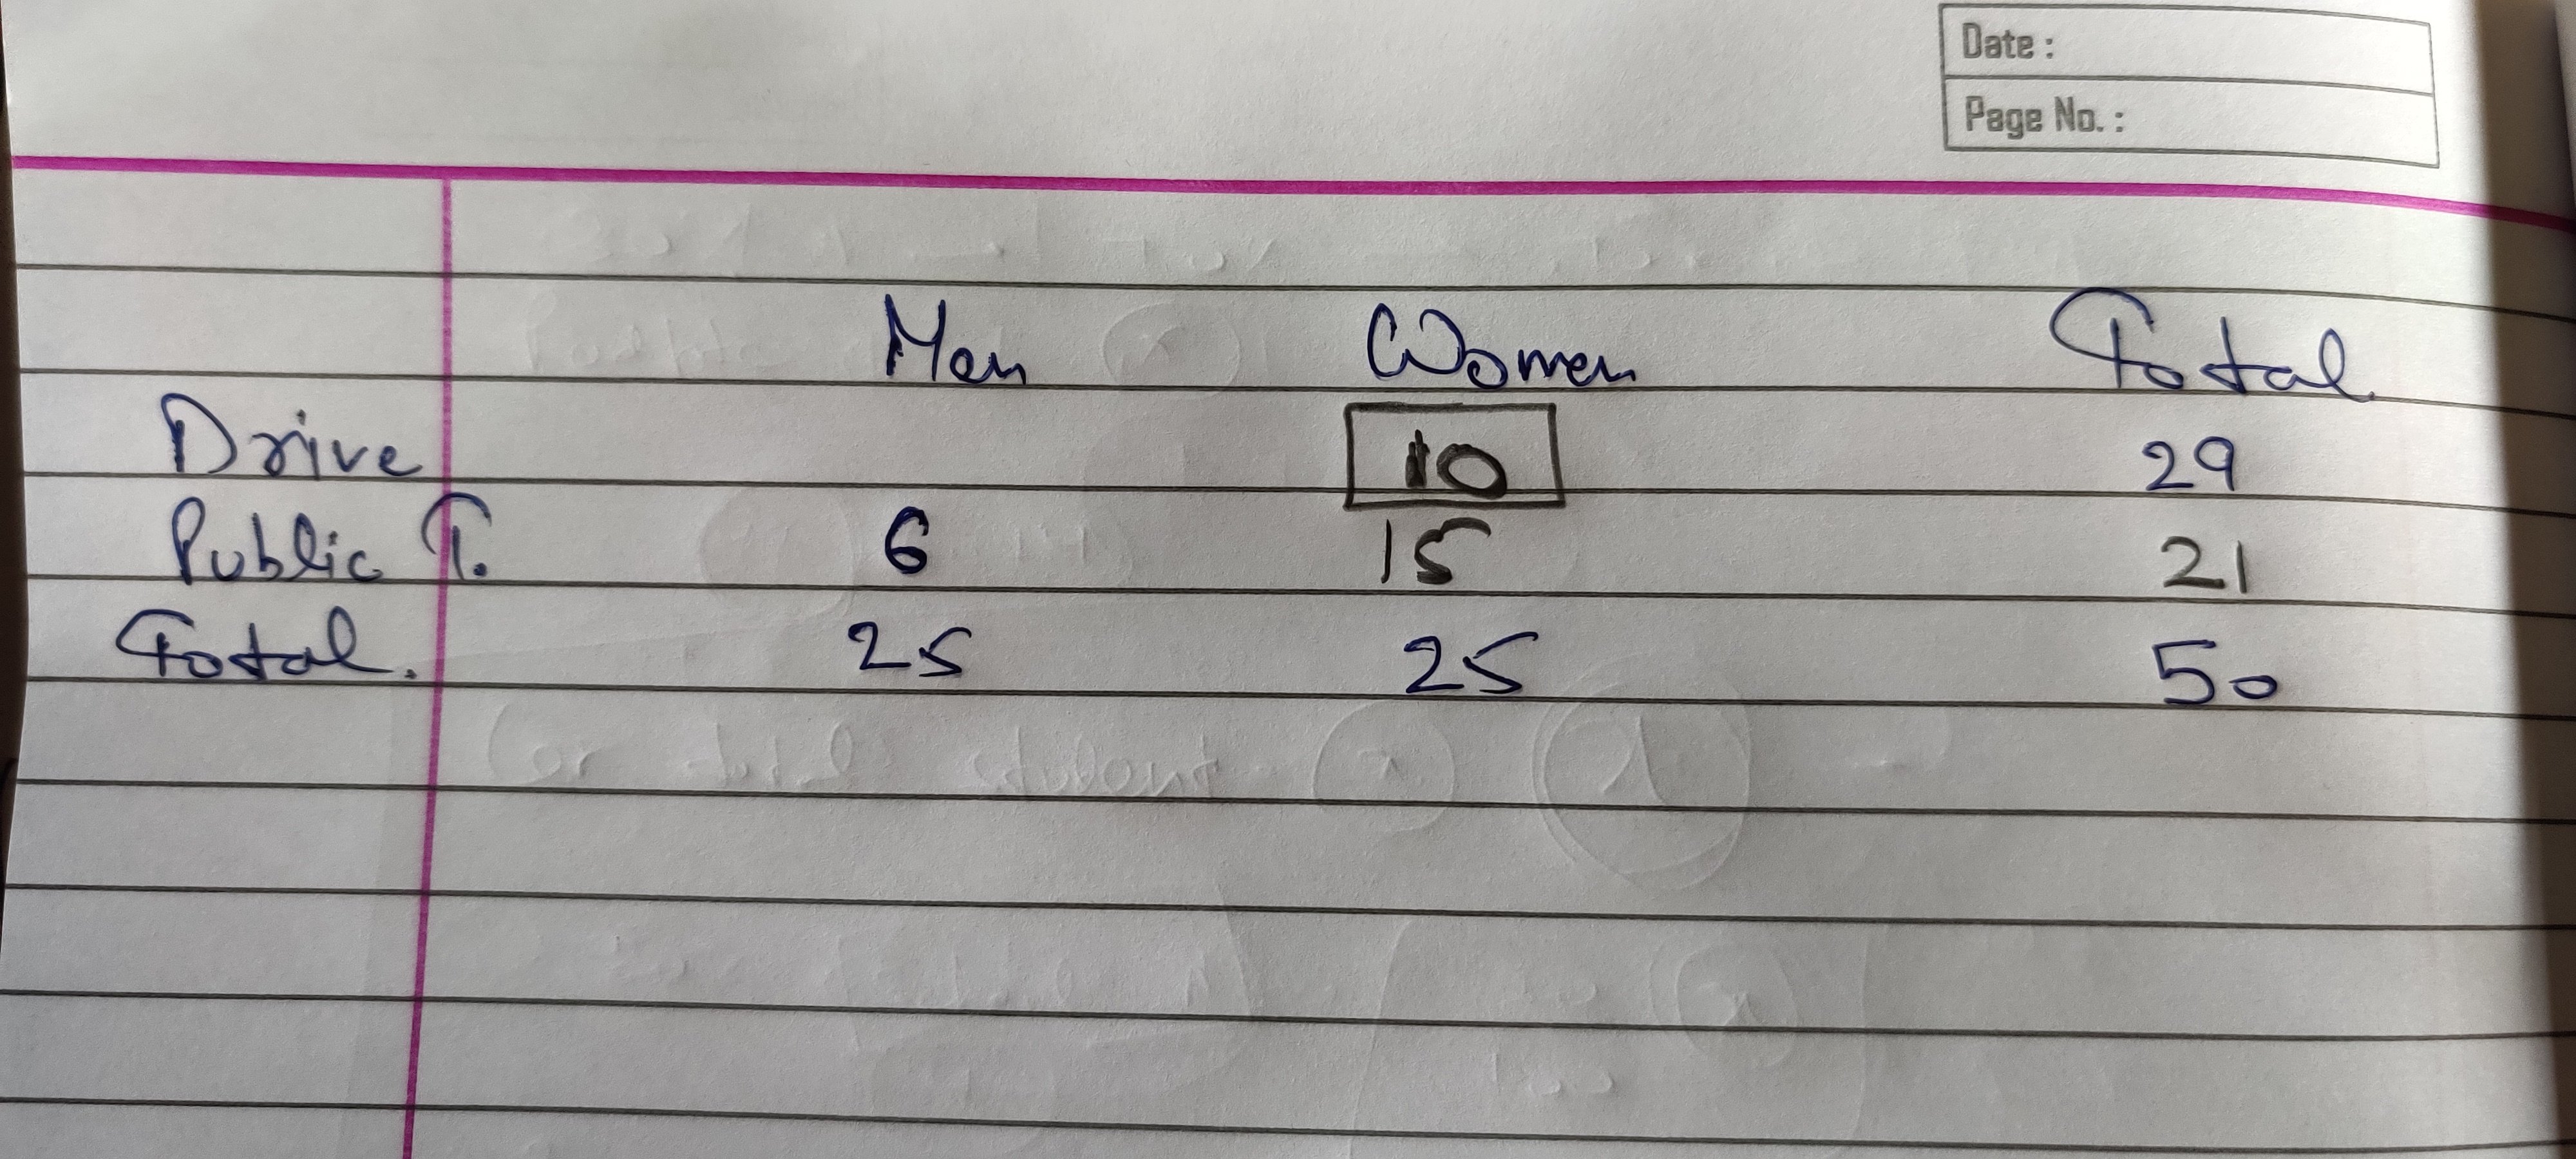 Date :
Page No. :
Men Women Total
Drive 10 29
Public T. 6 15 21
Total. 25 25 50